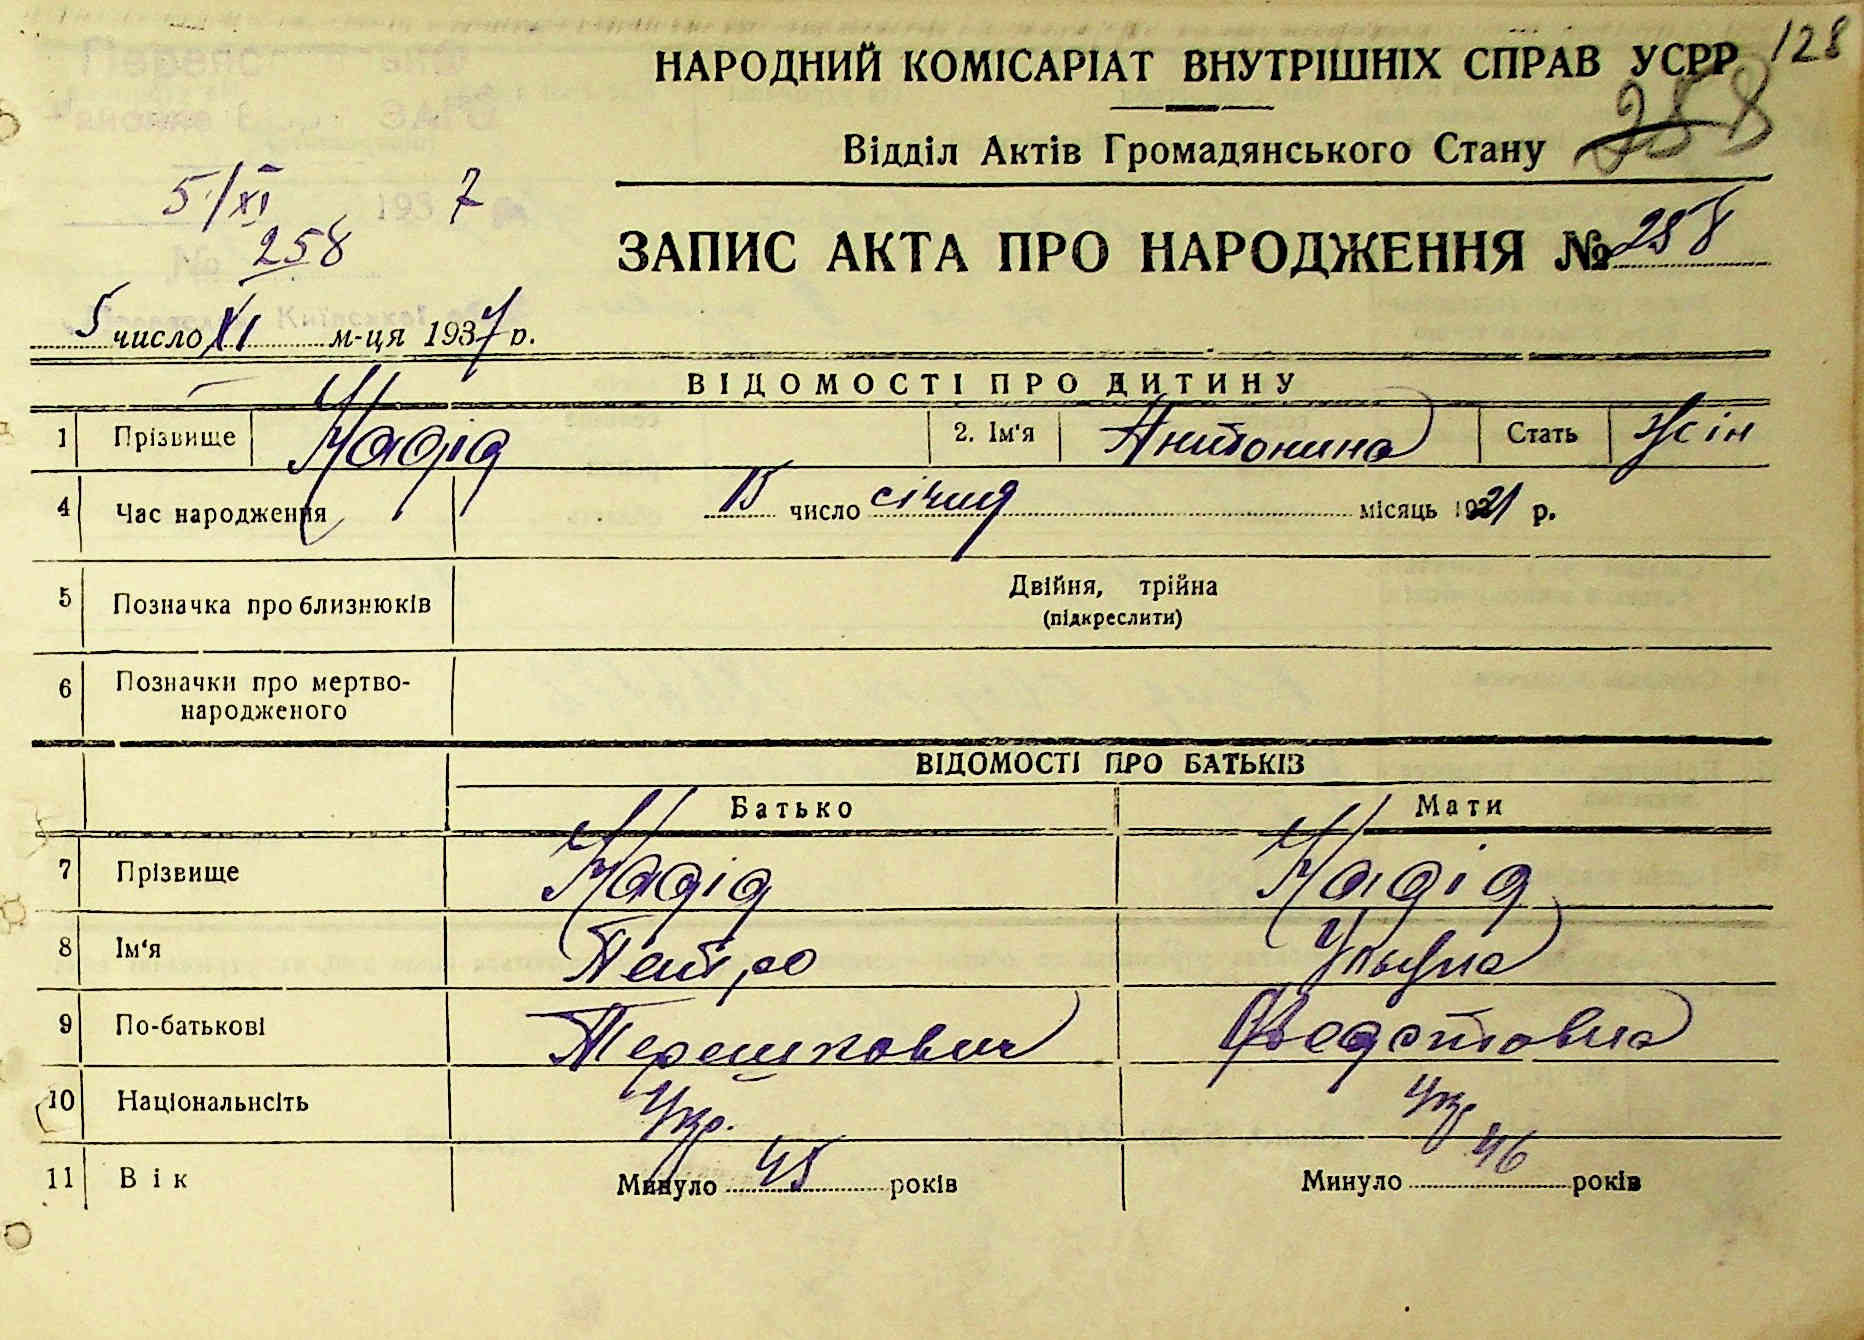 128
НАРОДНИЙ КОМІСАРІАТ ВНУТРІШНІХ СПРАВ УСРР
258
Відділ Актів Громадянського Стану
5/XI 1937
№ 258
ЗАПИС АКТА ПРО НАРОДЖЕННЯ № 258
5 число XI м-ця 1937 р.
ВІДОМОСТІ ПРО ДИТИНУ
1 Прізвище Надід 2. Ім'я Антонина Стать жін
4 Час народження 15 число січня місяць 1921 р.
5 Позначка про близнюків Двійня, трійна
(підкреслити)
6 Позначки про мертво-
народженого
ВІДОМОСТІ ПРО БАТЬКІВ
Батько Мати
7 Прізвище Надід Надід
8 Ім'я Петро Ульяна
9 По-батькові Терешкович Федотовна
10 Національнсіть Укр. Укр
11 Вік Минуло 45 років Минуло 46 років